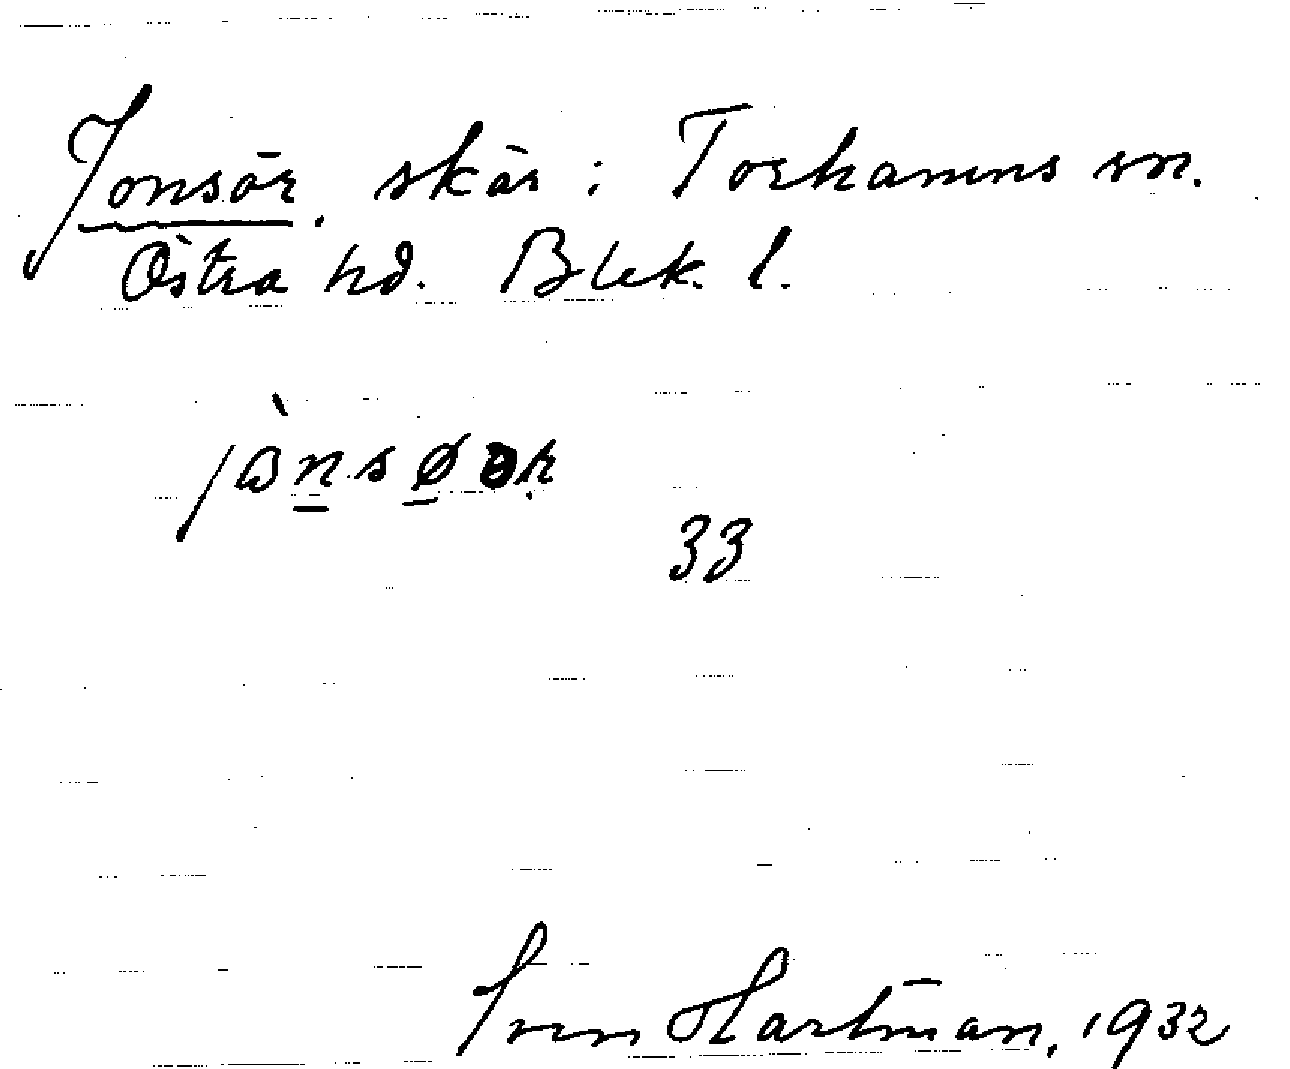 Jonsör, skär i Torhamns sn.
Östra hd. Blek. l.
jɷ̀nsøər
33
Sven Hartman, 1932